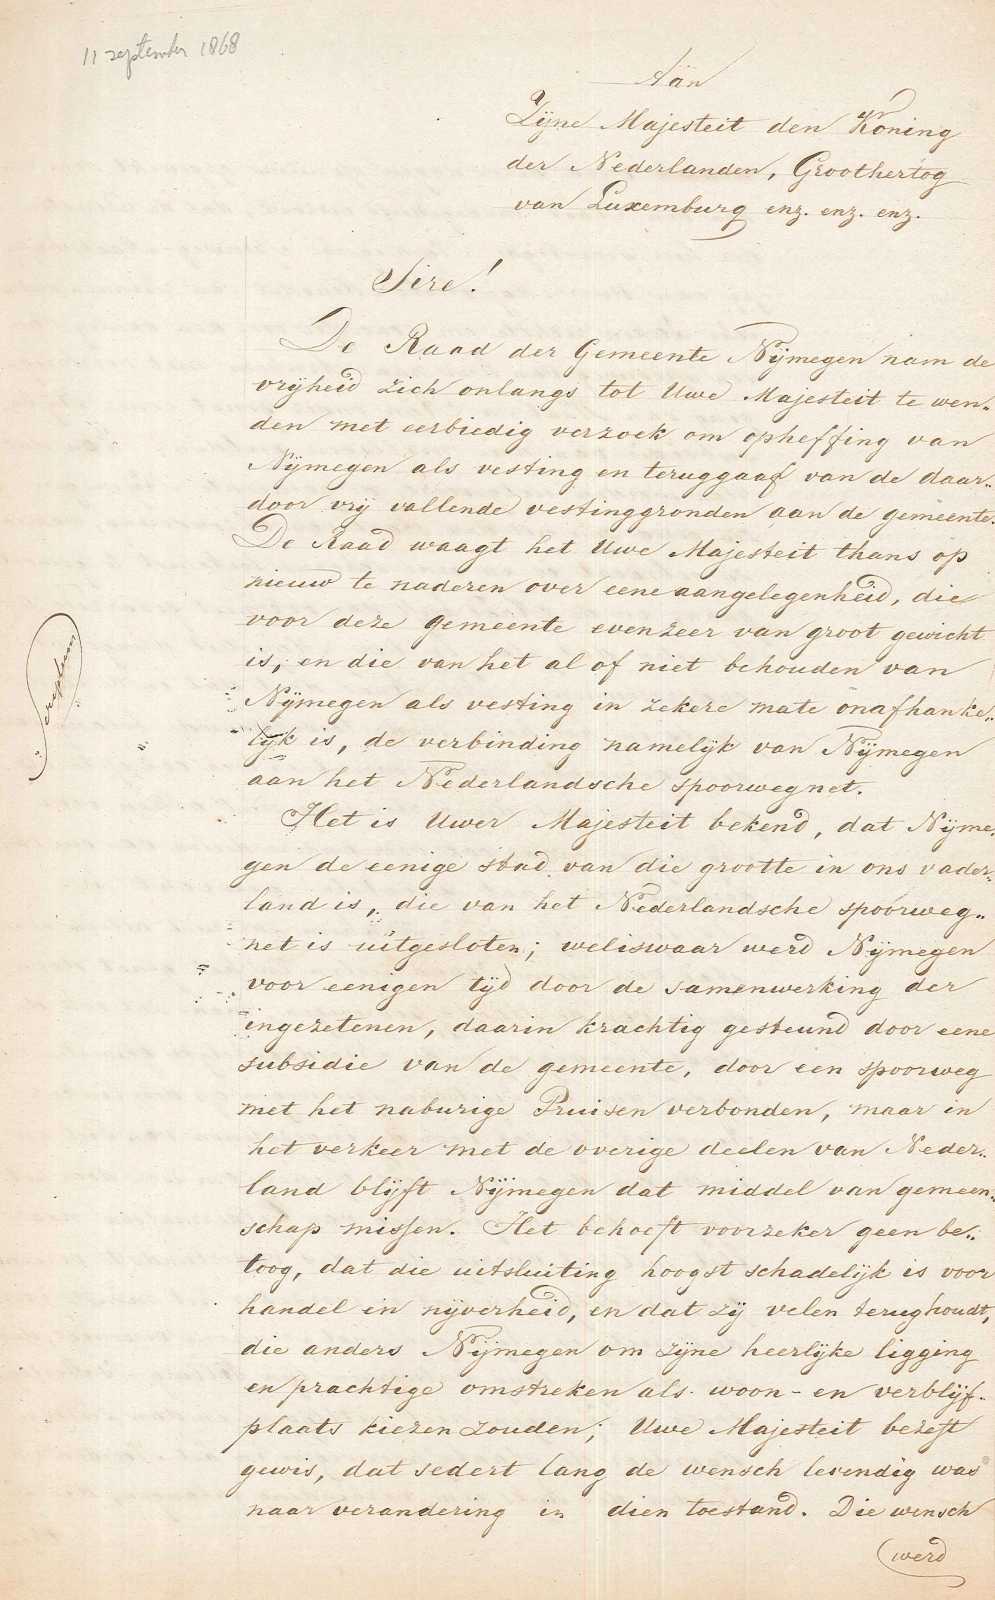 11 september 1868
Aan
Zijne Majesteit den Koning
der Nederlanden, Groothertog
van Luxemburg enz. enz. enz.
Sire!
De Raad der Gemeente Nijmegen nam de
vrijheid zich onlangs tot Uwe Majesteit te wen-
den met eerbiedig verzoek om opheffing van
Nijmegen als vesting en teruggaaf van de daar-
door vrij vallende vestinggronden aan de gemeente.
De Raad waagt het Uwe Majesteit thans op
nieuw te naderen over eene aangelegenheid, die
voor deze gemeente evenzeer van groot gewicht
is, en die van het al of niet behouden van
Nijmegen als vesting in zekere mate onafhanke-
lijk is, de verbinding namelijk van Nijmegen
aan het Nederlandsche spoorwegnet.
Het is Uwer Majesteit bekend, dat Nijme-
gen de eenige stad van die grootte in ons vader-
land is, die van het Nederlandsche spoorweg-
net is uitgesloten; weliswaar werd Nijmegen
voor eenigen tijd door de samenwerking der
ingezetenen, daarin krachtig gesteund door eene
subsidie van de gemeente, door een spoorweg
met het naburige Pruisen verbonden, maar in
het verkeer met de overige deelen van Neder-
land blijft Nijmegen dat middel van gemeen-
schap missen. Het behoeft voorzeker geen be-
toog, dat die uitsluiting hoogst schadelijk is voor
handel en nijverheid, en dat zij velen terughoudt,
die anders Nijmegen om zijne heerlijke ligging
en prachtige omstreken als woon- en verblijf-
plaats kiezen zouden; Uwe Majesteit bezeft
gewis, dat sedert lang de wensch levendig was
naar verandering in dien toestand. Die wensch
werd